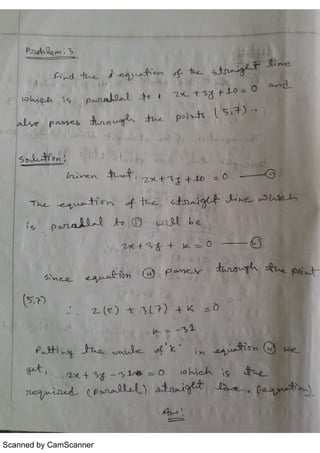 Problem: 3
Find the equation of the straight line
which is parallel to 2x + 3y + 10 = 0 and
also passes through the points (5,7)..
Solution:
Given that, 2x + 3y + 10 = 0 — (i)
The equation of the straight line which
is parallal to (i) will be,
2x + 3y + k = 0 — (ii)
Since equation (ii) passes through the point
(5,7)
∴ 2(5) + 3(7) + k = 0
k = -31
Putting the vaule of "k" in equation (ii) we
get, 2x + 3y - 31 = 0 which is the
required (parallel) straight line,
Ans:
Scanned by CamScanner